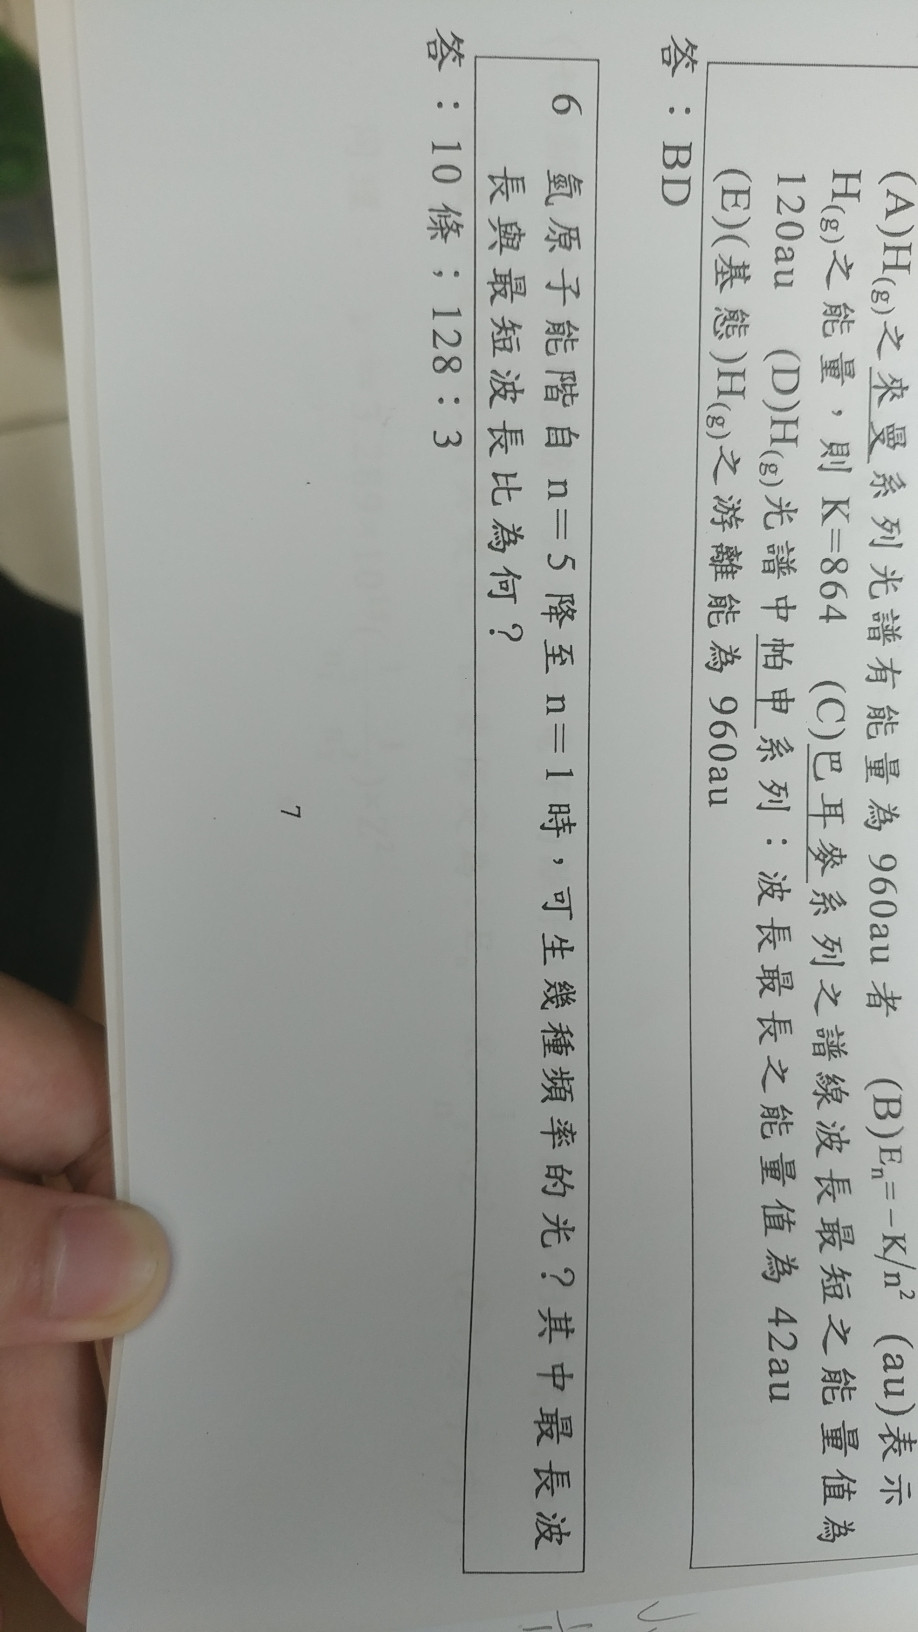 (A)H(g)之來曼系列光譜有能量為 960au 者 (B)En=−K/n² (au)表示
H(g)之能量，則 K=864 (C)巴耳麥系列之譜線波長最短之能量值為
120au (D)H(g)光譜中帕申系列：波長最長之能量值為 42au
(E)(基態)H(g)之游離能為 960au
答：BD
6 氫原子能階自 n＝5 降至 n＝1 時，可生幾種頻率的光？其中最長波
長與最短波長比為何？
答：10 條；128：3
7